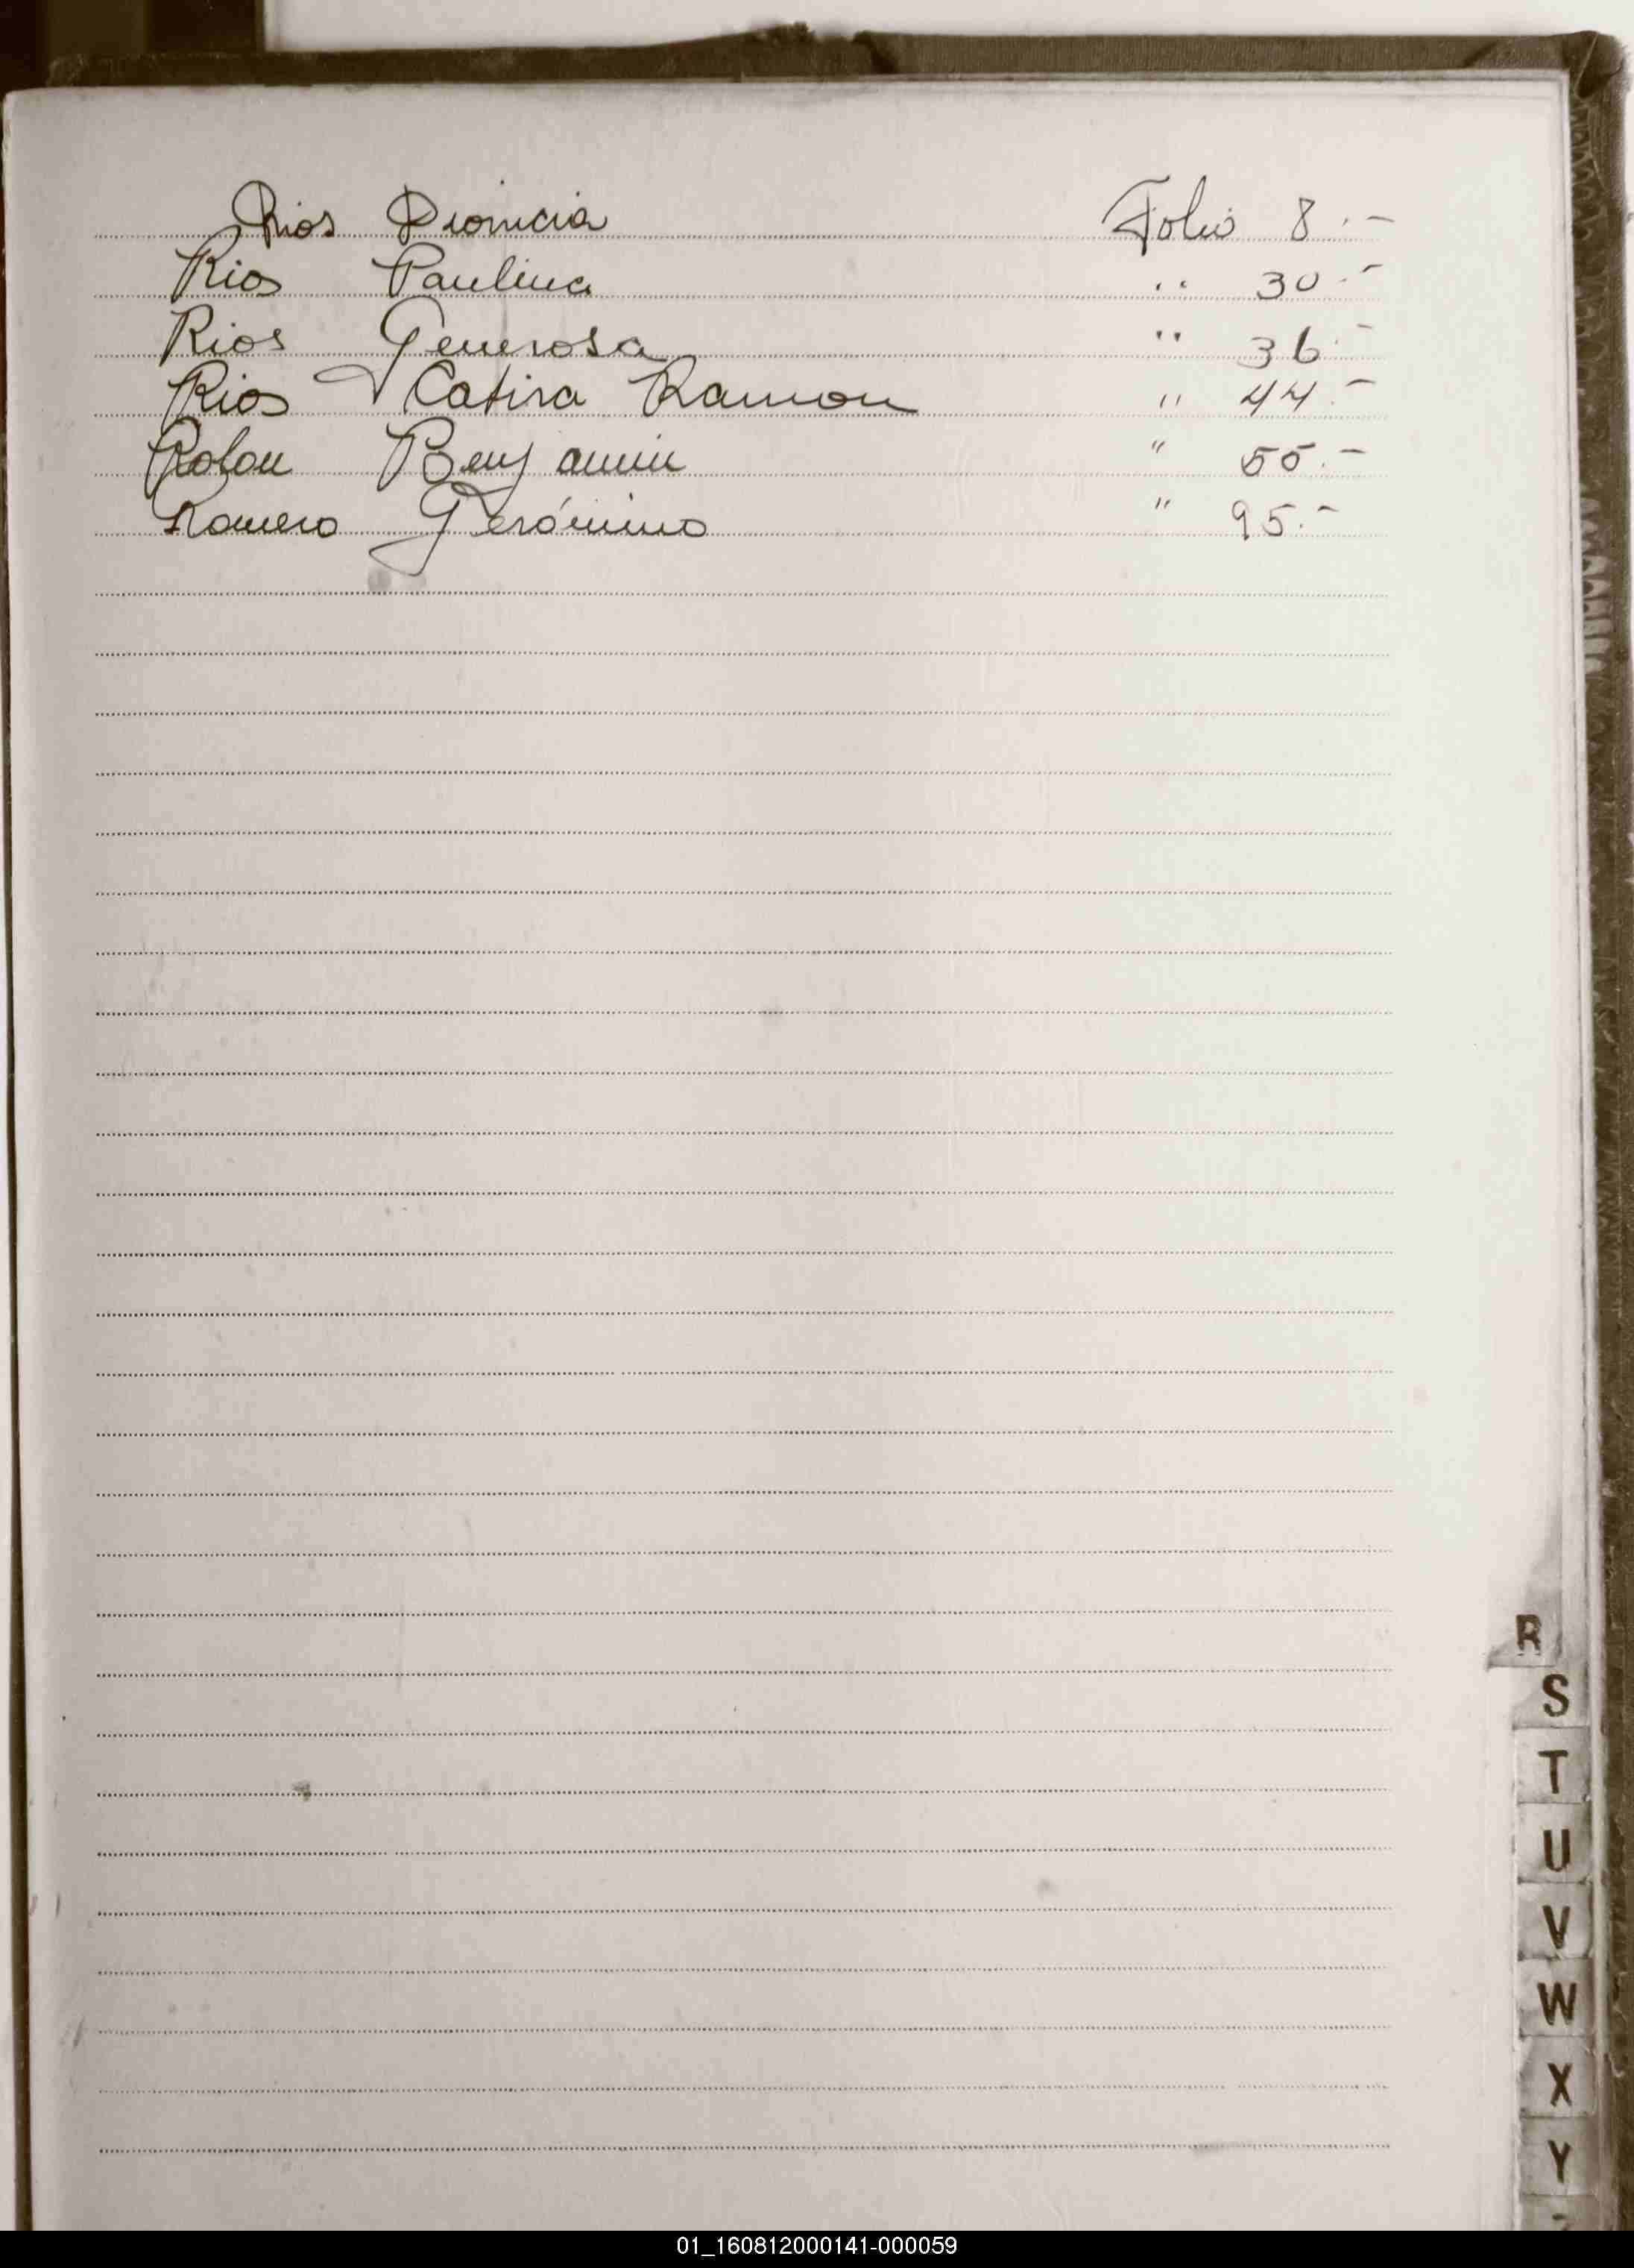 Rios Dionicia Folio 8.-
Rios Paulina " 30.-
Rios Generosa " 36.-
Rios Catira Ramon " 44.-
Rolon Benjamin " 55.-
Romero Gerónimo " 95.-
R
S
T
U
V
W
X
Y
01_160812000141-000059